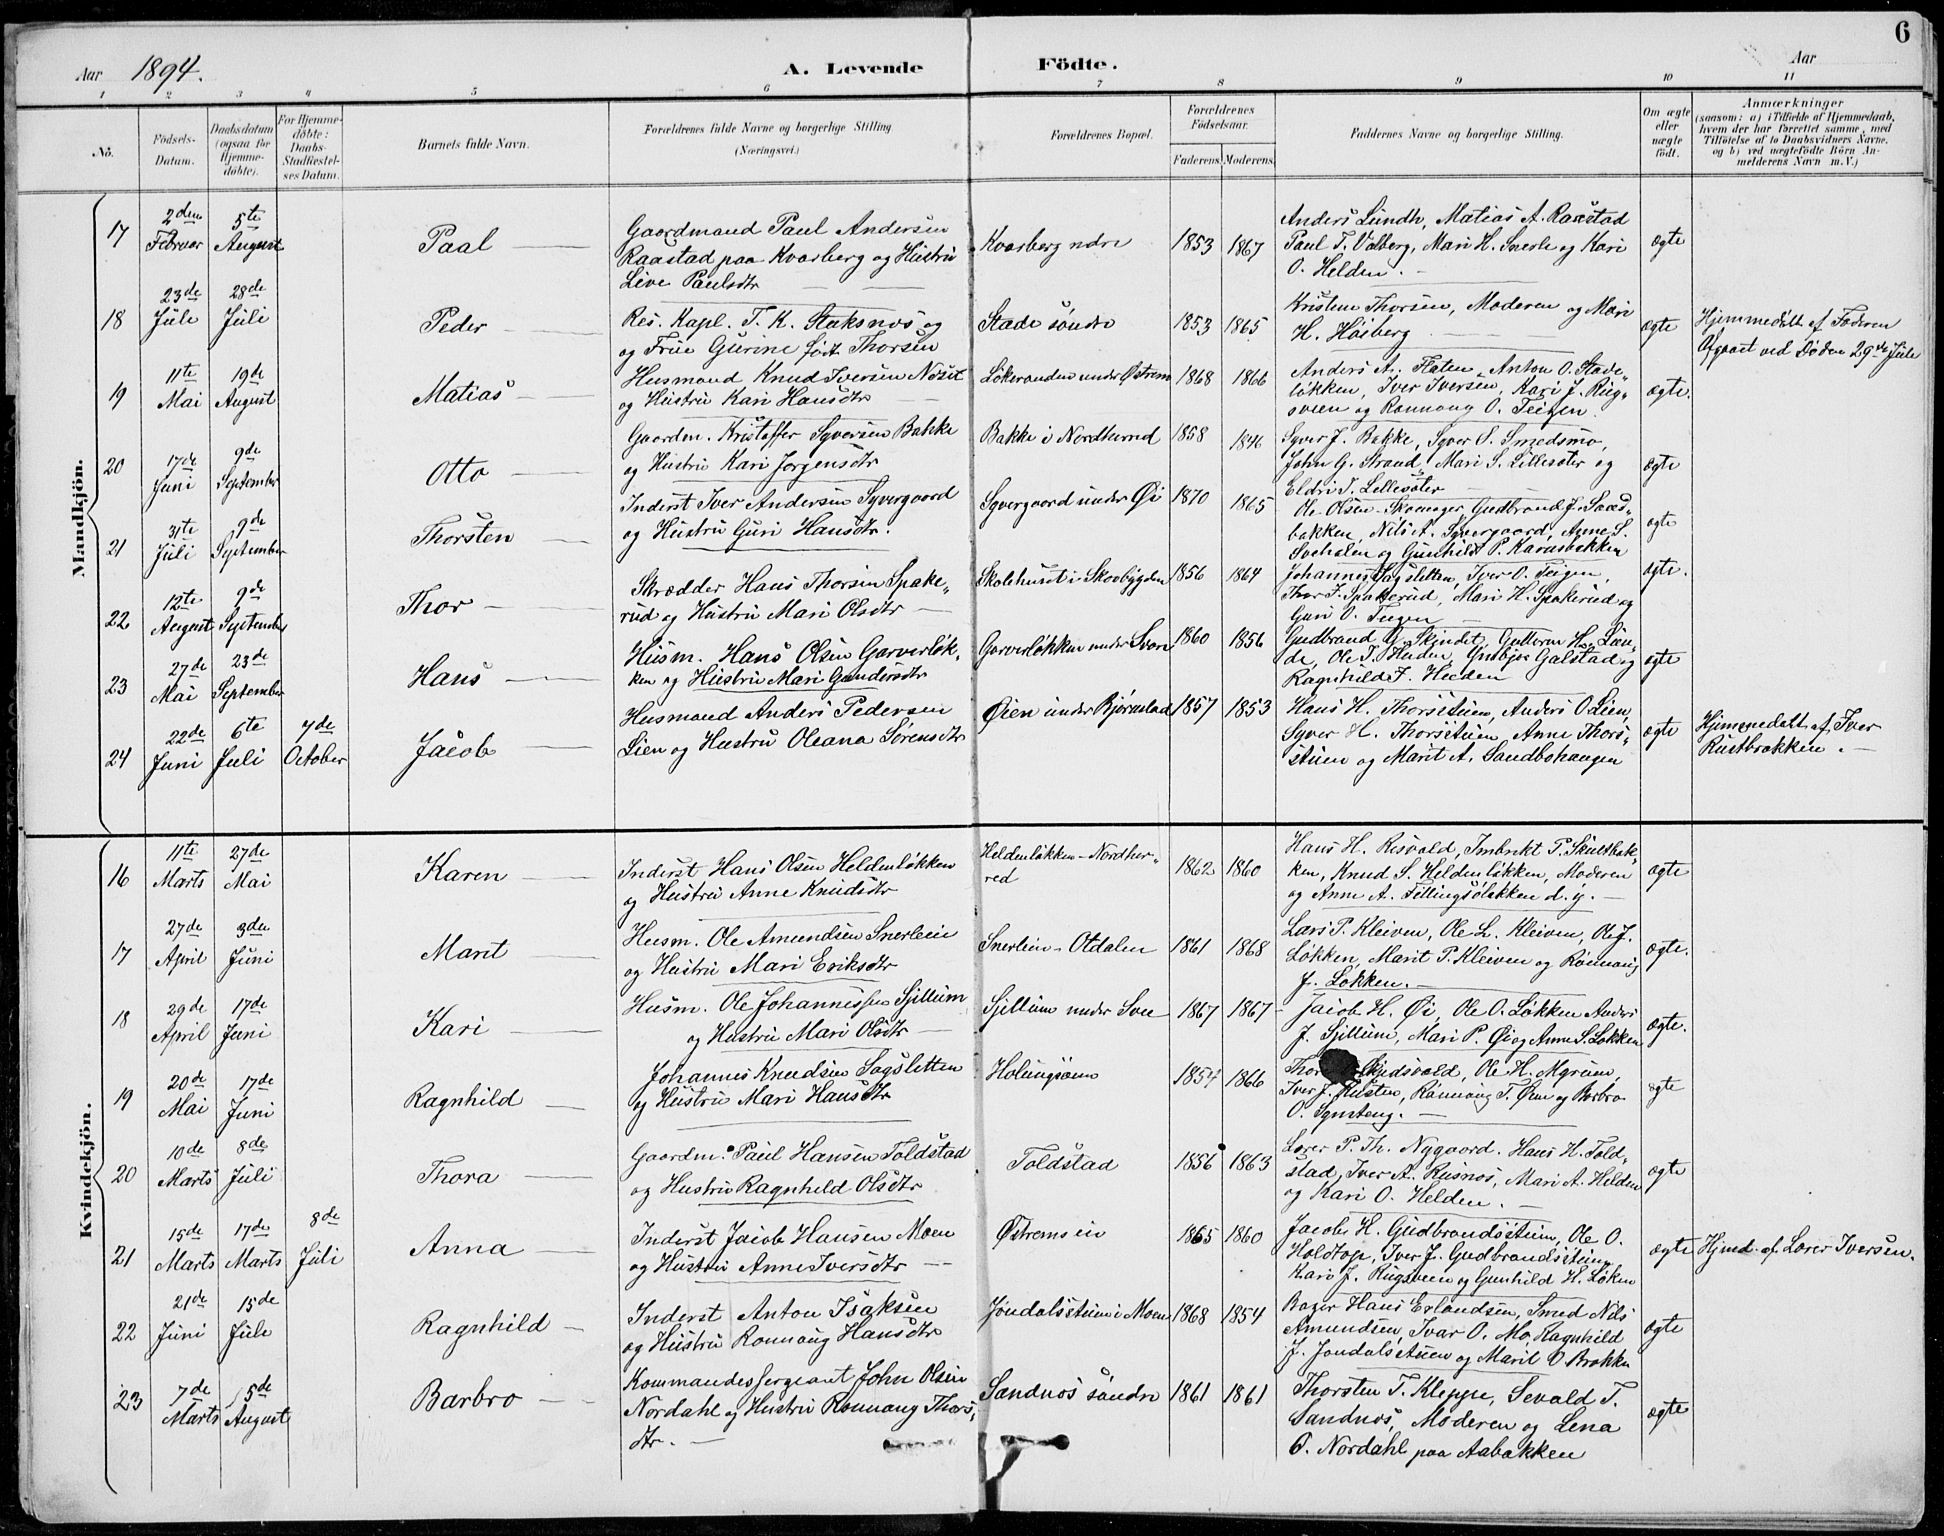 6
Aar 1894. A. Levende Födte. Aar
1 2 3 4 5 6 7 8 9 10 11
No. Födsels-Datum. Daabsdatum (ogsaa for Hjemme-döbte). For Hjemme-döbte: Daabs-Stadfæstel-ses Datum. Barnets fulde Navn. Forældrenes fulde Navne og borgerlige Stilling (Næringsvei.) Forældrenes Bopæl. Forældrenes Födselsaar. Faderens. Moderens. Faddernes Navne og borgerlige Stilling. Om ægte eller uægte födt. Anmærkninger (saasom: a) i Tilfælde af Hjemmedaab, hvem der har forrettet samme, med Tilföielse af to Daabsvidners Navne, og b) ved uægtefödte Börn An-melderens Navn m.V.)
Mandkjön.
17 2den Februar 5te August Paal Gaardmand Paul Andersen Kvarberg ndre 1853 1867 Anders Lundh, Matias A. Raastad ægte
Raastad paa Kvarberg og Hustru Paul T. Valberg, Mari H. Snerle og Kari
Live Paulsdtr O. Helden.
18 23de Juli 28de Juli Peder Res. Kapl. T. K. Staksnes og Stade söndre 1853 1865 Kristine Thorsen, Moderen og Mari ægte Hjemmedöbt af Faderen
og Frue Gurine födt Thorsen H. Höiberg Afgaaet ved Döden 29de Juli
19 11te Mai 19de August Matias Husmand Knud Iversen Lökeranden under Östrem 1868 1866 Anders A. Flaten, Anton O. Stade- ægte.
og Hustru Kari Hansdtr lökken, Iver Iversen, Kari J. Rug-
sveen og Rønnaug O. Teigen.
20 17de Juni 9de September Otto Gaardm. Kristoffer Syversen Bakke Bakke i Nordherred 1858 1846 Syver J. Bakke, Syver S. Smedsmo, ægte
og Hustru Kari Jorgensdtr John G. Strand, Mari S. Lillesæter og
Eldri T. Lillesæter
21 31te Juli 9de September Thorsten Inderst Iver Andersen Syvergaard Syvergaard under Øi 1870 1865 Ole Olsen Skamger, Gudbrand J. ægte
og Hustru Guri Hansdtr. bakken, Nils A. Syvergaard, Anne S.
og Gunhild P.
22 12te August 9de September Thor Skrædder Hans Thorsen Spake- Skolehuset i Skovbygden 1856 1864 Johannes Sagsletten, Iver O. Teigen, ægte.
rud og Hustru Mari Olsdtr Thor J. Spakerud, Mari H. Spakerud og
Guri O. Teigen
23 27de Mai 23de September Hans Husm. Hans Olsen Garverløk- Garverløkken under Svare 1860 1856 Gudbrand G. Skjindet, Guttorm H. ægte
ken og Hustru Mari Gundersdtr de, Ole T. Heiden, Galstad og
Ragnhild F. Heiden
24 22de Juni 6te Juli 7de October Jacob Husmand Anders Pedersen Øien under Bjørnstad 1857 1853 Hans H. Thorsstuen, Anders O. Lien, ægte Hjemmedøbt af Iver
Lien og Hustru Oleana Sørensdtr Syver H. Thorsstuen, Anne Thors- Rustbrækken.
stuen og Marit A. Sandbohaugen
Kvindekjön.
16 11te Marts 27de Mai Karen Inderst Hans Olsen Heldenløkken Heldenløkken-Nordher- 1862 1860 Hans H. Risvold, Imbrikt P. Skultbak- ægte
og Hustru Anne Knudsdtr red ken, Knud S. Heldenløkken, Moderen
og Anne A. Tillingsøløkken d. y.
17 27de April 3die Juni Marit Husm. Ole Amundsen Snerleie Snerleie-Otdalen 1861 1868 Lars P. Kleiven, Ole L. Kleiven, Ole J. ægte.
og Hustru Mari Eriksdtr Løkken, Marit P. Kleiven og Rønnaug
J. Løkken.
18 29de April 17de Juni Kari Husm. Ole Johannessen Sjillum Sjillum under Svee 1867 1867 Jacob H. Øi, Ole O. Løkken, Anders ægte.
og Hustru Mari Olsdtr J. Sjillum, Mari P. Øi og Anne S. Løkken
19 20de Mai 17de Juni Ragnhild Johannes Knudsen Sagsletten 1854 1866 Thor Skjedsvold, Ole H. Myrum, ægte
og Hustru Mari Hansdtr Iver J. Husten, Rønnaug T. Øien og Barbro
O.
20 10de Marts 8de Juli Thora Gaardm. Paul Hansen Toldstad Toldstad 1856 1863 Lærer P. Th. Nygaard. Hans H. Told- ægte
og Hustru Ragnhild Olsdtr stad, Iver A. Rusnes, Mari A. Helden
og Kari O. Helden.
21 15de Marts 17de Marts 8de Juli Anna Inderst Jacob Hansen Moen Østremseie 1865 1860 Jacob H. Gudbrandsstuen, Ole O. ægte Hjmd. af Lærer Iversen.
og Hustru Anne Iversdtr Holdtop, Iver J. Gudbrandsstuen,
Kari J. Rugsveen og Gunhild H. Løken
22 21de Juni 15de Juli Ragnhild Inderst Anton Isaksen Jondalsstuen i Moen 1868 1854 Bager Hans Erlandsen, Smed Nils ægte
og Hustru Rønnaug Hansdtr Amundsen, Ivar O. Mo, Ragnhild
J. Jondalsstuen og Marit O. Brække
23 7de Marts 5de August Barbro Kommandersergeant John Olsen Sandnes söndre 1861 1861 Thorsten T. Kleppe, Sevald T. ægte
Nordahl og Hustru Rønnaug Thors- Sandnes, Moderen og Lena
dtr. O. Nordahl paa Aabakken